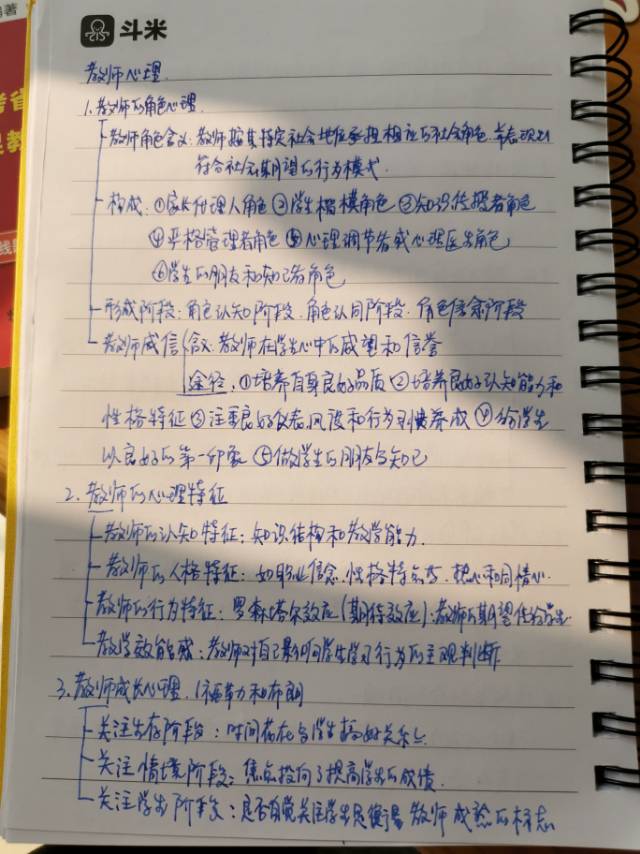 斗米
教师心理
1.教师的角色心理
教师角色含义:教师按其特定社会地位承担相应的社会角色,并表现出
符合社会期望的行为模式.
构成:①家长代理人角色②学生楷模角色③知识传授者角色
④严格管理者角色⑤心理调节者或心理医生角色
⑥学生的朋友和知己者角色
形成阶段:角色认知阶段.角色认同阶段.角色信念阶段
教师威信 含义:教师在学生心中的威望和信誉
途径:①培养自身良好品质②培养良好认知能力和
性格特征③注重良好仪表、风度和行为习惯养成④给学生
以良好的第一印象⑤做学生的朋友与知己
2.教师的心理特征
教师的认知特征:知识结构和教学能力.
教师的人格特征:如职业信念.性格特点.热心和同情心.
教师的行为特征:罗森塔尔效应(期待效应):教师的期望
教学效能感:教师对自己影响学生学习行为的主观判断
3.教师成长心理.(福勒和布朗)
关注生存阶段:时间花在与学生搞好关系上.
关注情境阶段:焦点投向了提高学生的成绩.
关注学生阶段:是否自觉关注学生是衡量教师成熟的标志